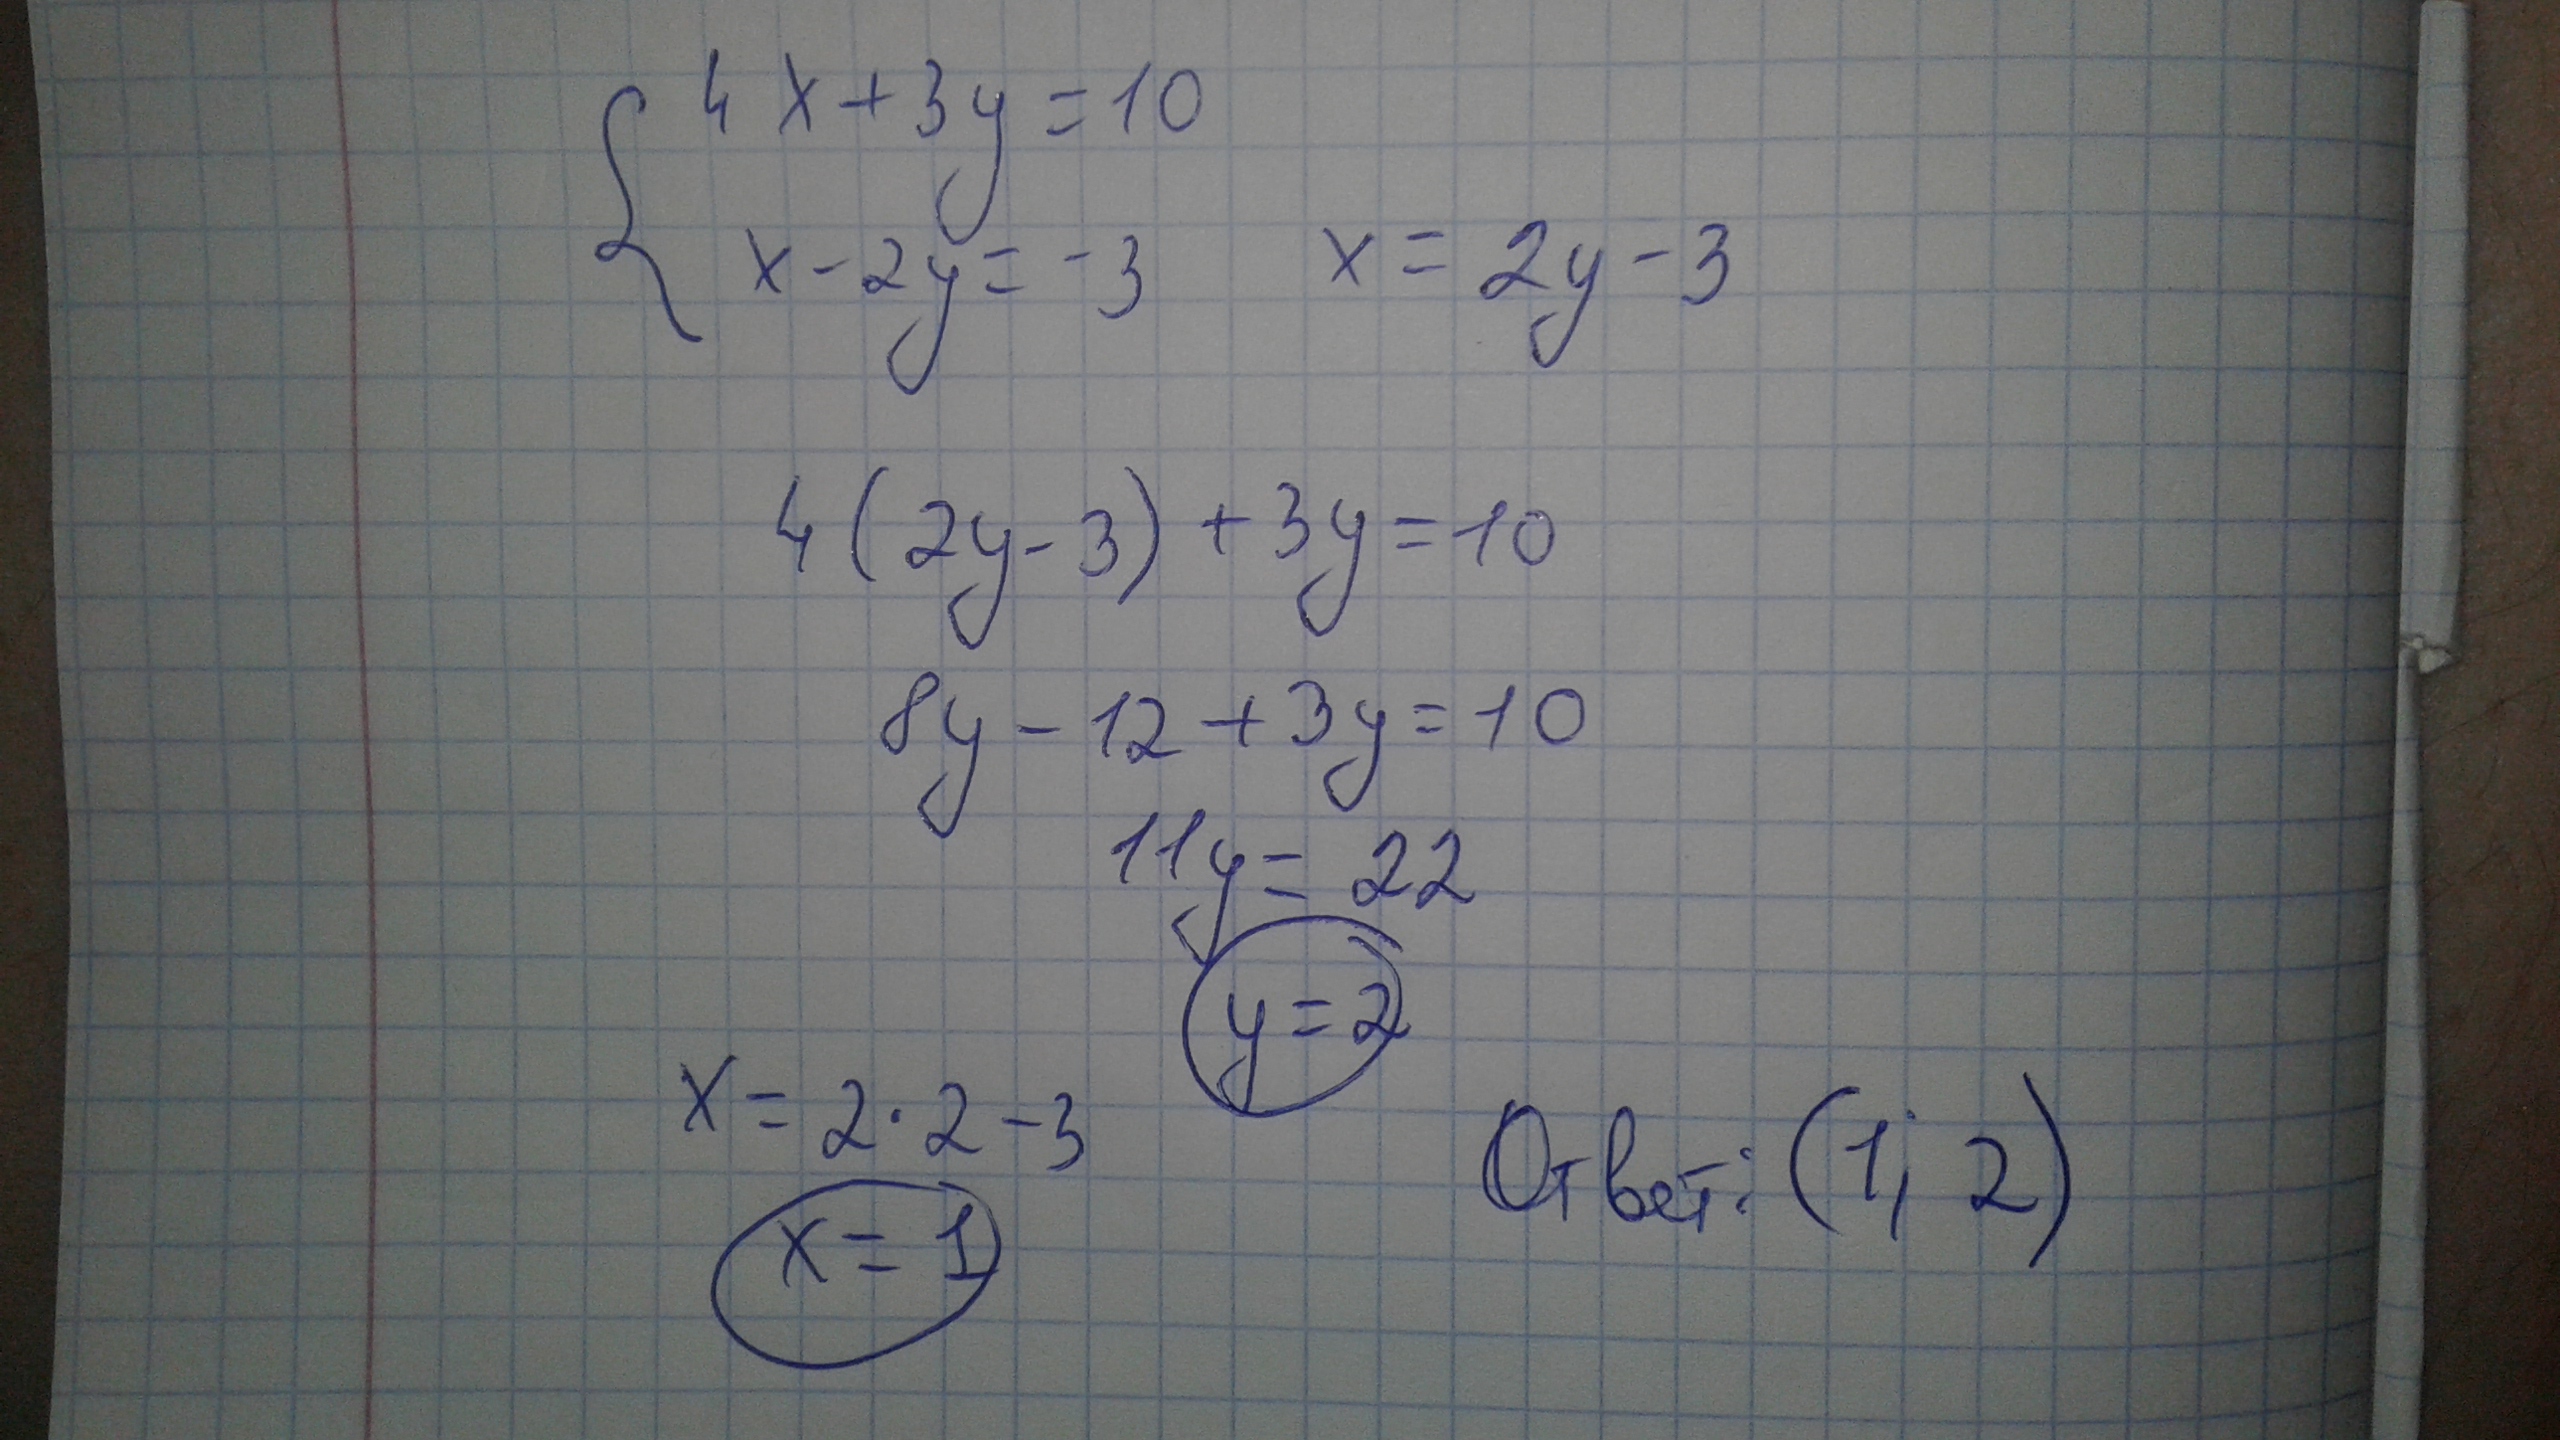 { 4x + 3y = 10
x - 2y = -3 x = 2y - 3
4(2y - 3) + 3y = 10
8y - 12 + 3y = 10
11y = 22
y = 2
x = 2 · 2 - 3
x = 1
Ответ: (1; 2)